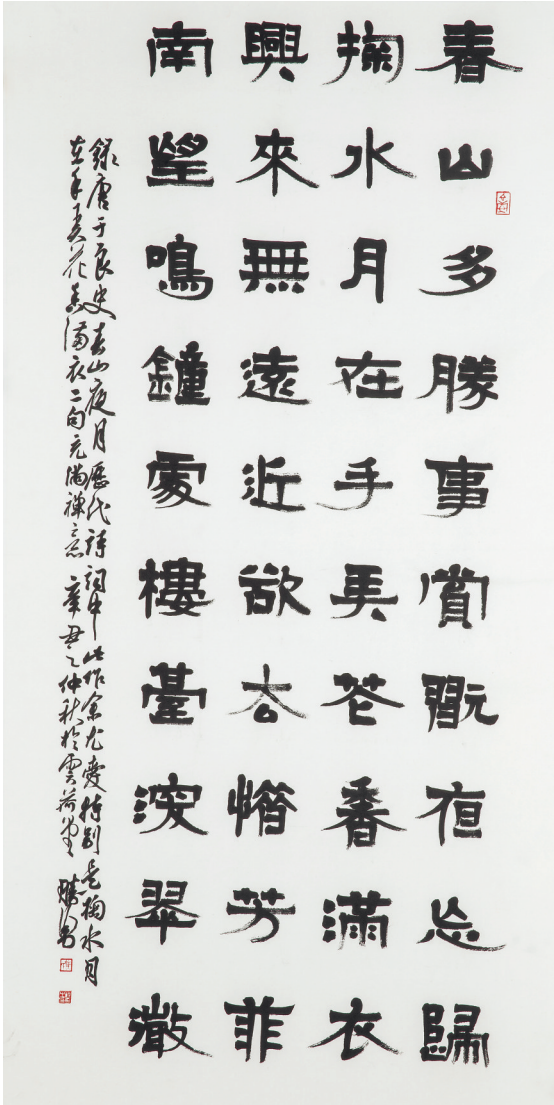 春山多勝事賞翫夜忘歸
掬水月在手弄花香滿衣
興來無遠近欲去惜芳菲
南望鳴鐘處樓臺深翠微
錄唐于良史春山夜月歷代詩詞中此作余尤愛特別是掬水月
在手弄花香滿衣二句充滿禪意 辛丑之仲秋於雲荷堂